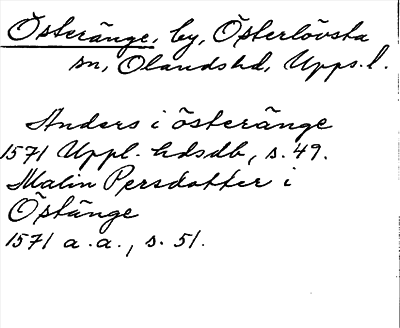 Österänge, by, Österlövsta
sn, Olandshd, Upps. l.
Anders i österänge
1571 Uppl. hdsdb, s. 49.
Malin Persdotter i
Östänge
1571 a.a., s. 51.